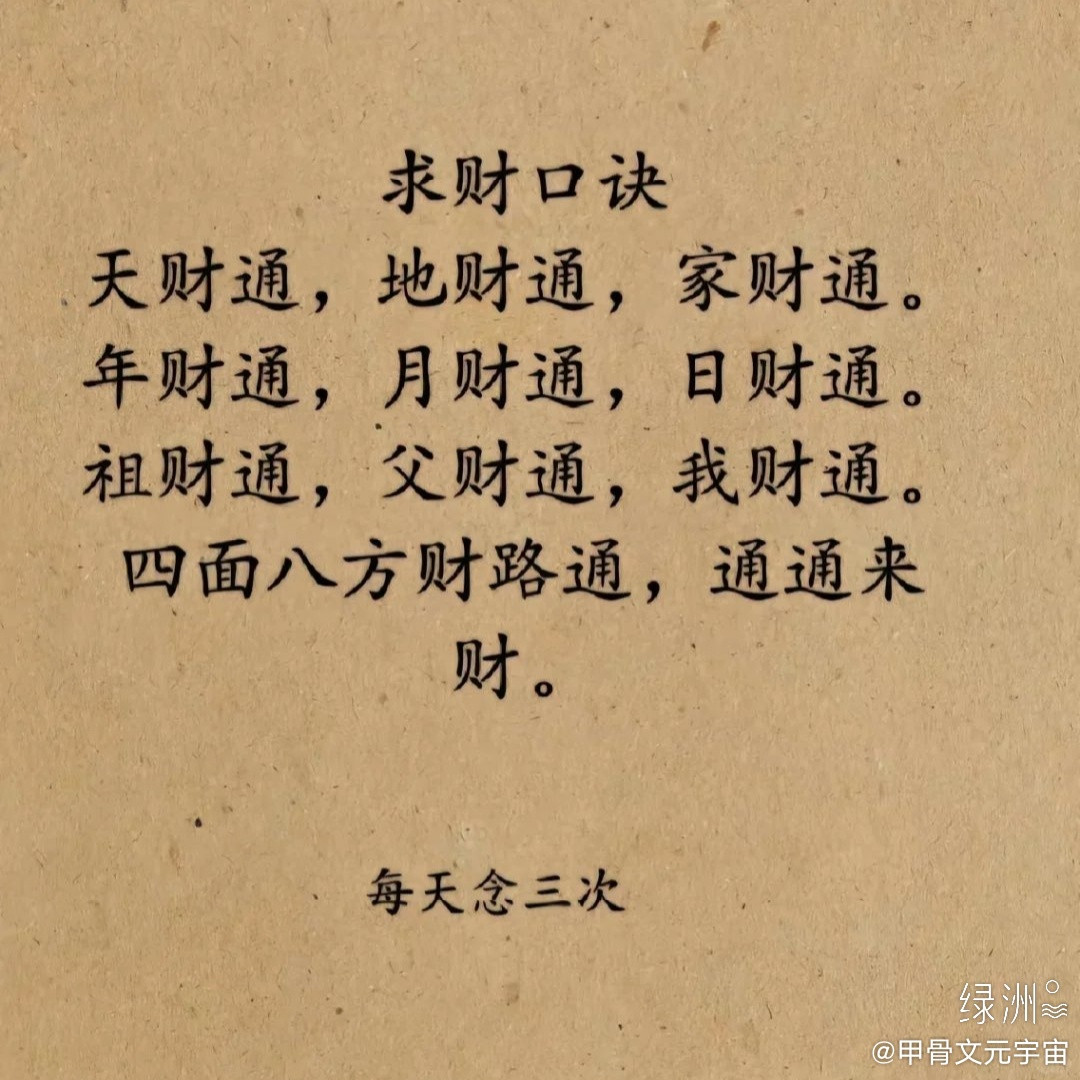 求财口诀
天财通，地财通，家财通。
年财通，月财通，日财通。
祖财通，父财通，我财通。
四面八方财路通，通通来
财。
每天念三次
绿洲
@甲骨文元宇宙